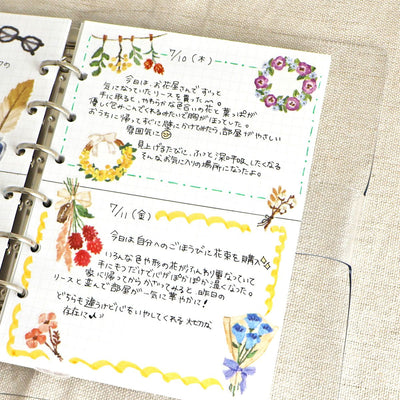 7/10 (木)
今日は、お花屋さんでずっと
気になっていたリースを買った〜。
手に取ると、やわらかな色合いの花と葉っぱが
優しく包みこんでくれるみたいで胸がほっとした。
おうちに帰ってすぐに壁にかけてみたら、部屋がやさしい
雰囲気に
見上げるたびに、ふっと深呼吸したくなる
そんなお気に入りの場所になったよ。
7/11 (金)
今日は自分へのごほうびに花束を購入
いろんな色や形の花がふんわり重なっていて
手にもつだけで心がぽかぽか温くなった。
家に帰ってからかざってみると 昨日の
リースと並んで部屋が一気に華やかに!
どちらも違うけど心をいやしてくれる 大切な
存在に♪